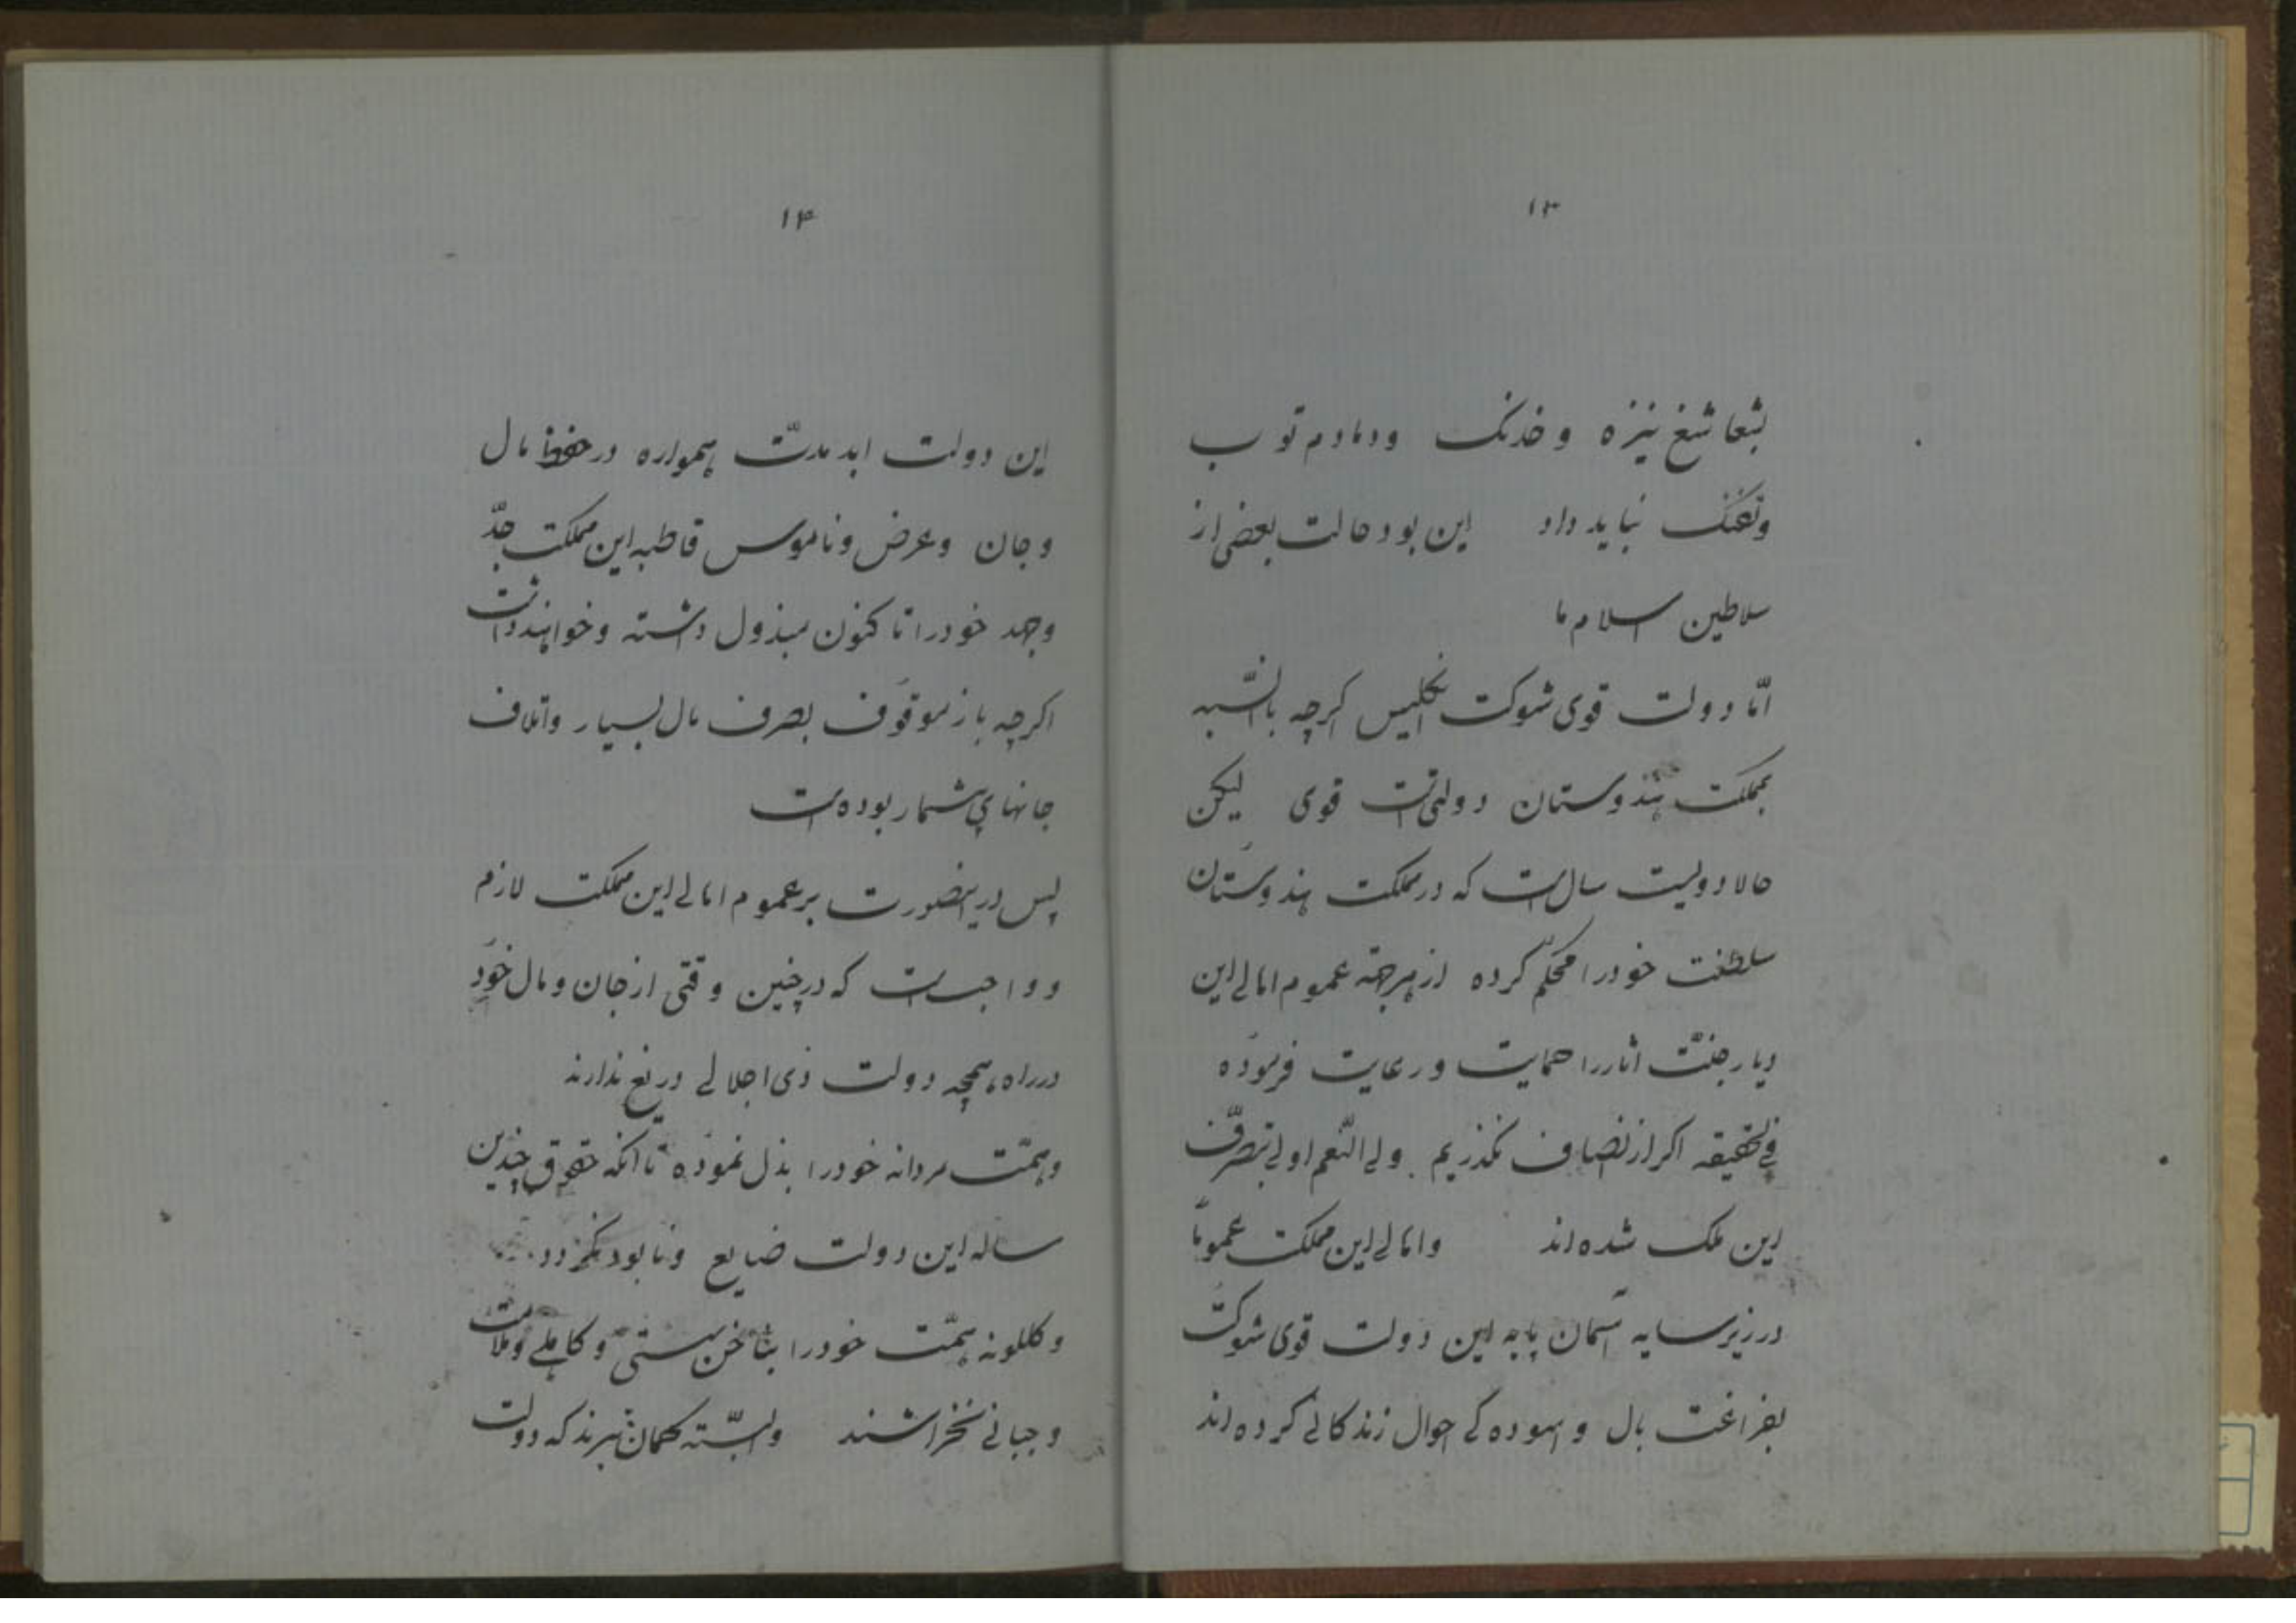 ۱۳
بشعاشع نیزه و خدنک ودمادم توپ
وتفنک نباید داد این بود حالت بعضی از
سلاطین اسلام ما
امّا دولت قوی شوکت انکلیس اکرچه بالنّسبه
بمملکت هندوستان دولتی است قوی لیکن
حالا دویست سال است که در مملکت هندوستان
سلطنت خود را محکم کرده از هر جهة عموم اهالی این
دیار جنّت اثار را حمایت و رعایت فرموده
فی الحقیقه اکر از انصاف نکذریم ولی النّعم اولی بتصرّف
این ملک شده اند واهالی این مملکت عموماً
در زیر سایه آسمان پایه این دولت قوی شوکت
بفراغت بال و اسوده کی احوال زندکانی کرده اند
۱۴
این دولت ابد مدّت همواره در حفظ مال
و جان وعرض وناموس قاطبه این مملکت جدّ
وجهد خود را تا کنون مبذول داشته و خواهند داشت
اکرچه باز موقوف بصرف مال بسیار واتلاف
جانهای بی شمار بوده است
پس در اینصورت بر عموم اهالی این مملکت لازم
و واجب است که در چنین وقتی از جان و مال خود
در راه همچه دولت ذی اجلالی دریغ ندارند
وهمّت مردانه خود را بذل نموده تا انکه حقوق چندین
ساله این دولت ضایع ونابود نکردد
وکلکونه همّت خود را بناخن سستی و کاهلی وملامت
وجبانی نخراشند والبتّه کمان نبرند که دولت